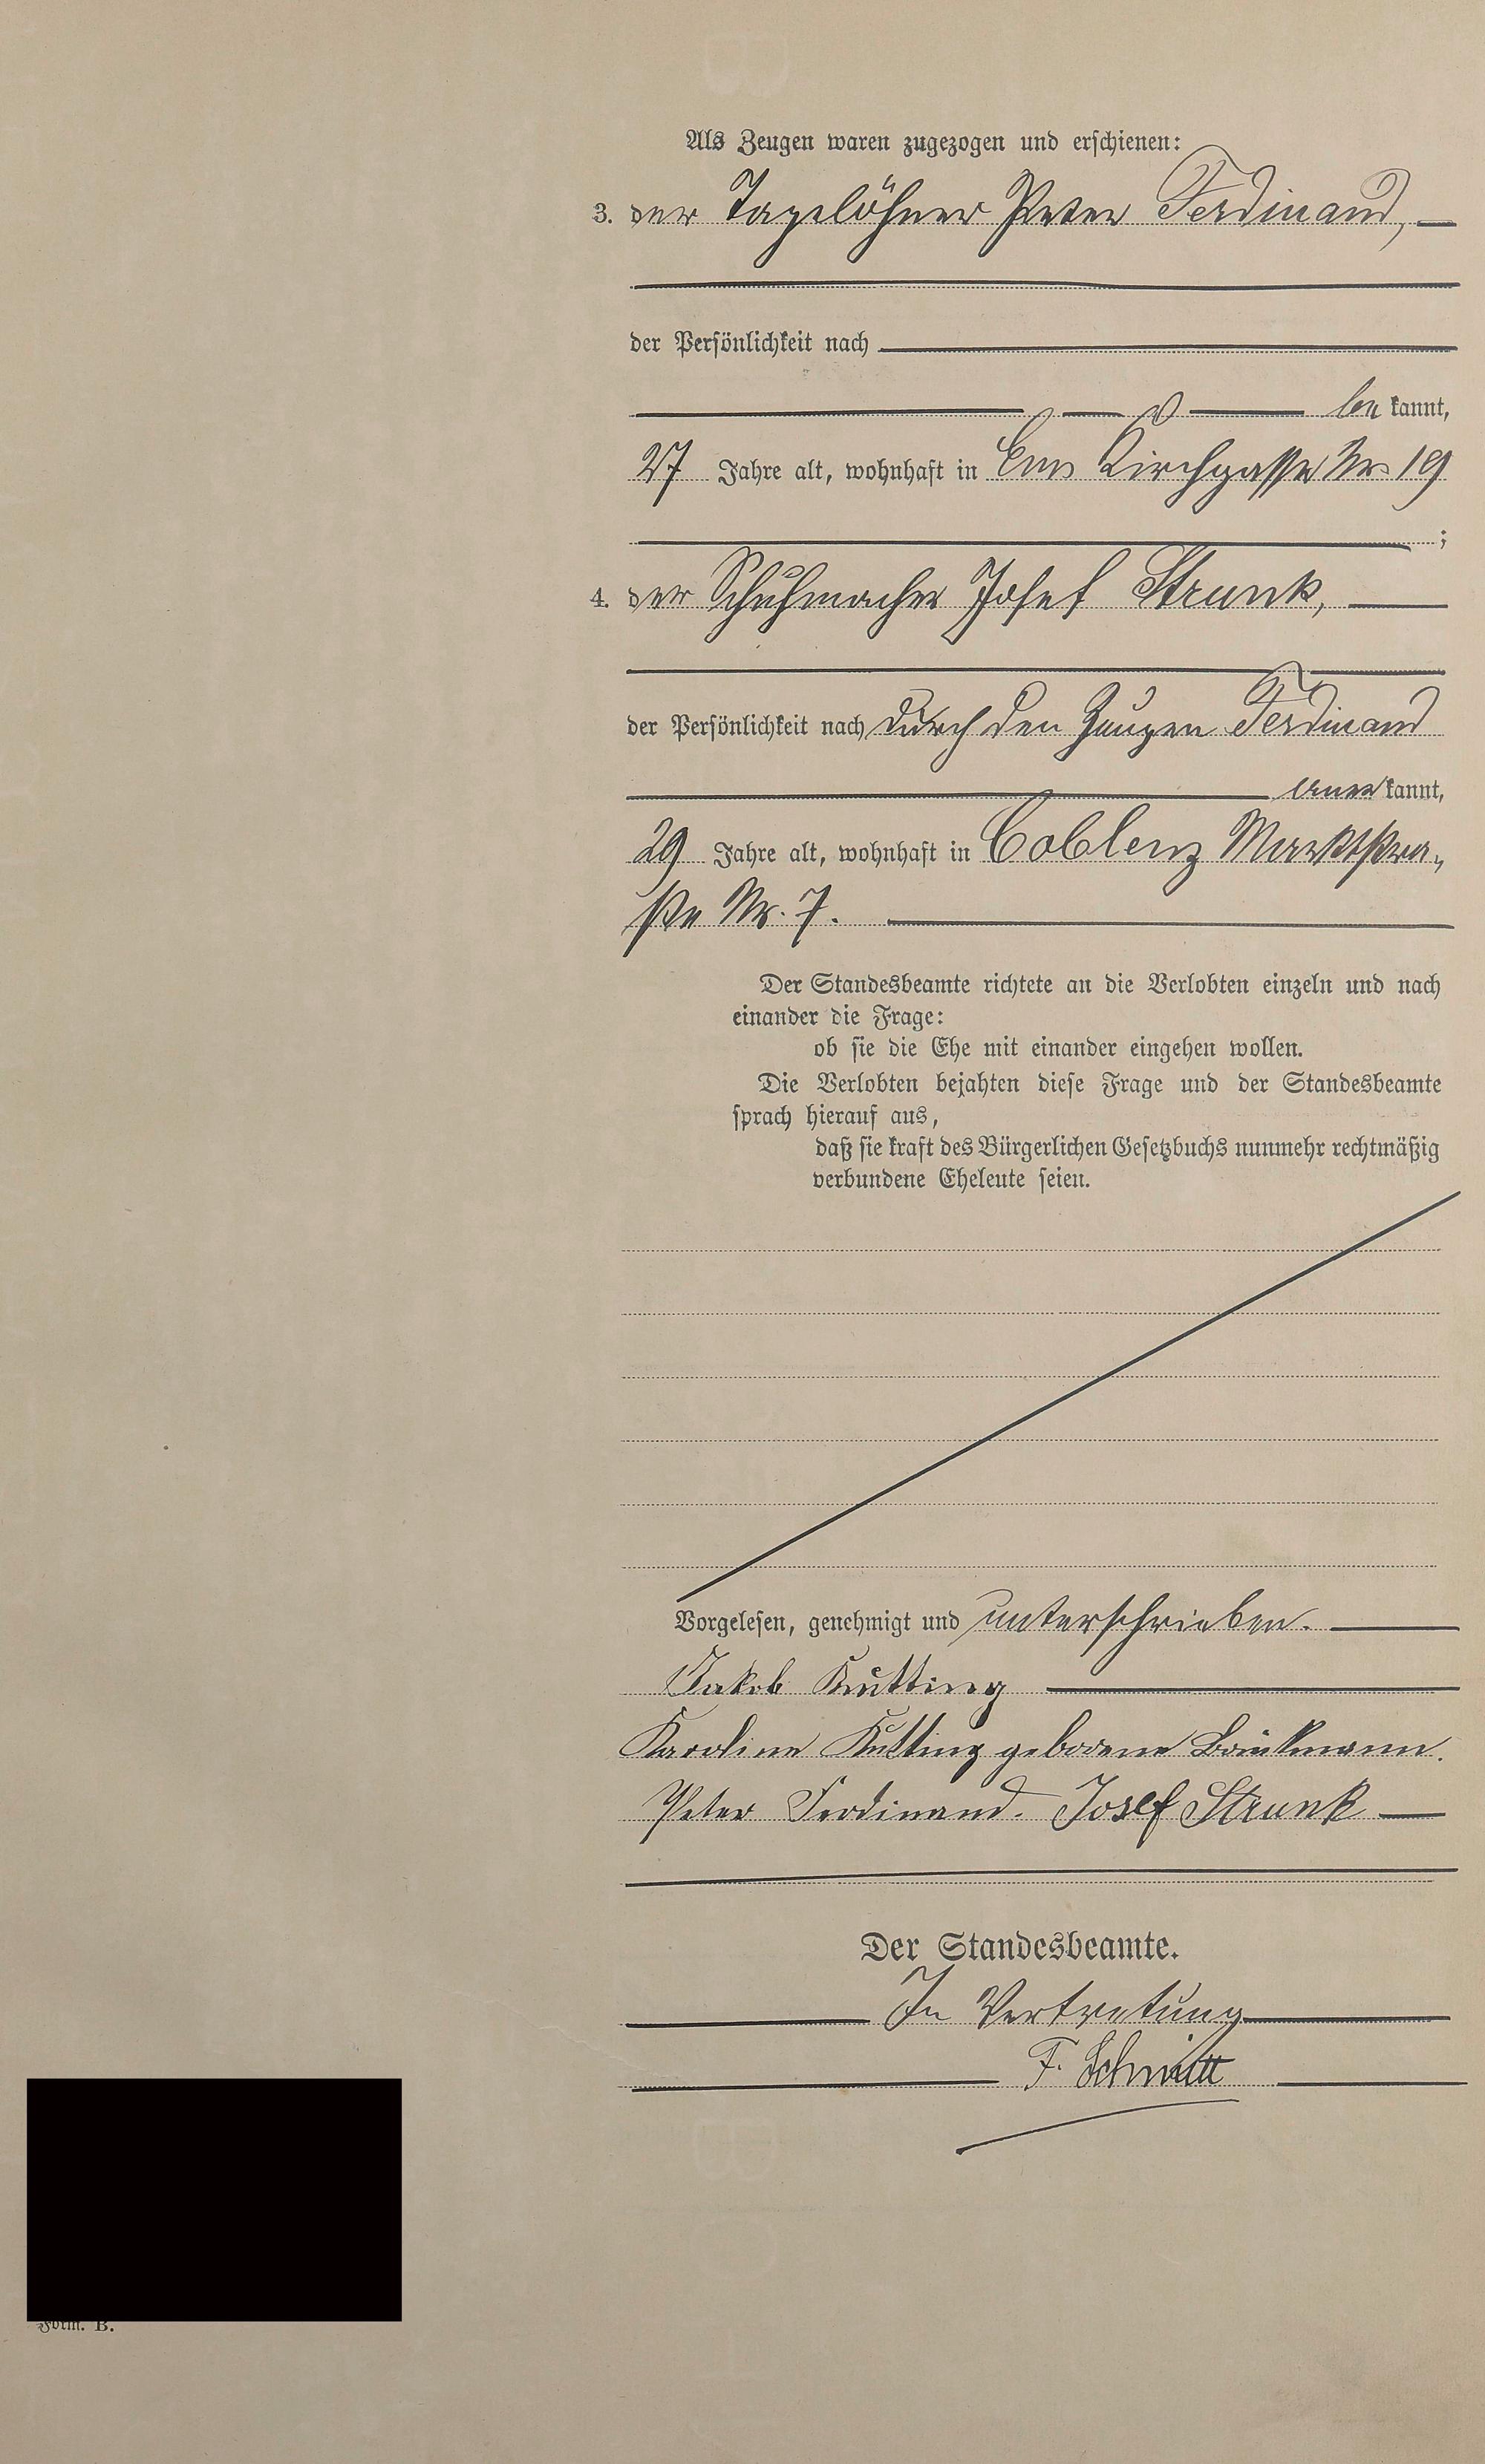 Als Zeugen waren zugezogen und erschienen:
3. der Tagelöhner Peter Ferdinand,
der Persönlichkeit nach
be kannt,
27 Jahre alt, wohnhaft in Ems Kirchgasse Nr. 19
;
4. der Schuhmacher Josef Strunk,
der Persönlichkeit nach durch den Zeugen Ferdinand
aner kannt,
29 Jahre alt, wohnhaft in Coblenz Marktstra„
ße Nr. 7.
Der Standesbeamte richtete an die Verlobten einzeln und nach
einander die Frage:
ob sie die Ehe mit einander eingehen wollen.
Die Verlobten bejahten diese Frage und der Standesbeamte
sprach hierauf aus,
daß sie kraft des Bürgerlichen Gesetzbuchs nunmehr rechtmäßig
verbundene Eheleute seien.
Vorgelesen, genehmigt und unterschrieben.
Jakob Kutting
Karoline Kutting geborene Brückmann.
Peter Ferdinand. Josef Strunk
Der Standesbeamte.
In Vertretung
F. Schmitt
Form. B.